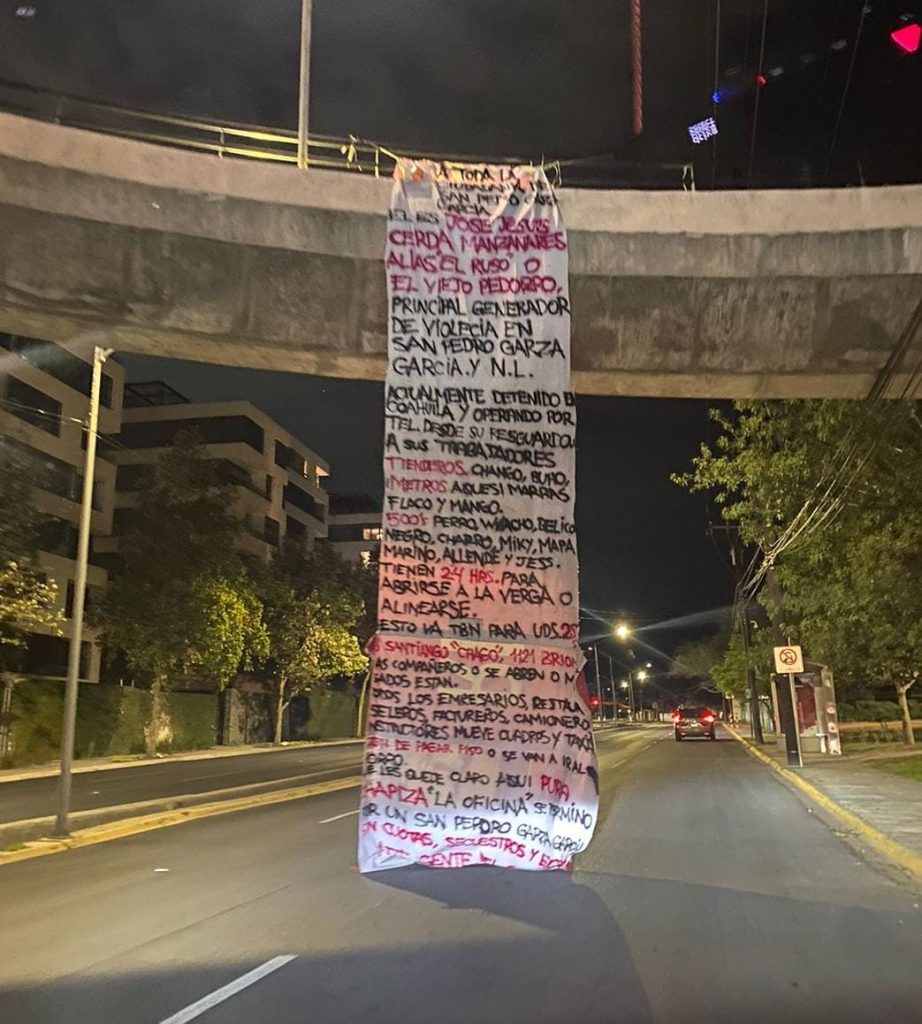 A TODA LA
CIUDADANIA DE
SAN PEDRO GARZA
GARCIA
EL ES JOSE JESUS
CERDA MANZANARES
ALIAS "EL RUSO" O
EL VIEJO PEDORRO,
PRINCIPAL GENERADOR
DE VIOLECIA EN
SAN PEDRO GARZA
GARCIA. Y N.L.
ACTUALMENTE DETENIDO EN
COAHUILA Y OPERANDO POR
TEL. DESDE SU RESGUARDO.
A SUS TRABAJADORES
TIENDEROS, CHANGO, BURO,
METROS AQUESI MARRAS
FLACO Y MANGO.
500's PERRO, WINACHO, BELICO
NEGRO, CHARRO, MIKY, MAPA
MARINO, ALLENDE Y JESS.
TIENEN 24 HRS. PARA
ABRIRSE A LA VERGA O
ALINEARSE.
ESTO VA TBN PARA UDS. 28
SANTIANGO "CHAGO", 1121 BRION
AS COMPAÑEROS O SE ABREN O M
ADOS ESTAN.
LOS EMPRESARIOS, RESTAU
SELEROS, FACTUREROS, CAMIONERO
MUEVE CUADROS Y
DE PAGAR PISO O SE VAN A IR AL
ORPO.
E LES QUEDE CLARO AQUI PURA
GAPIZA "LA OFICINA" SE TERMINO
OR UN SAN PERDRO GARZA GARCIA
N CUOTAS, SECUESTROS Y
GENTE